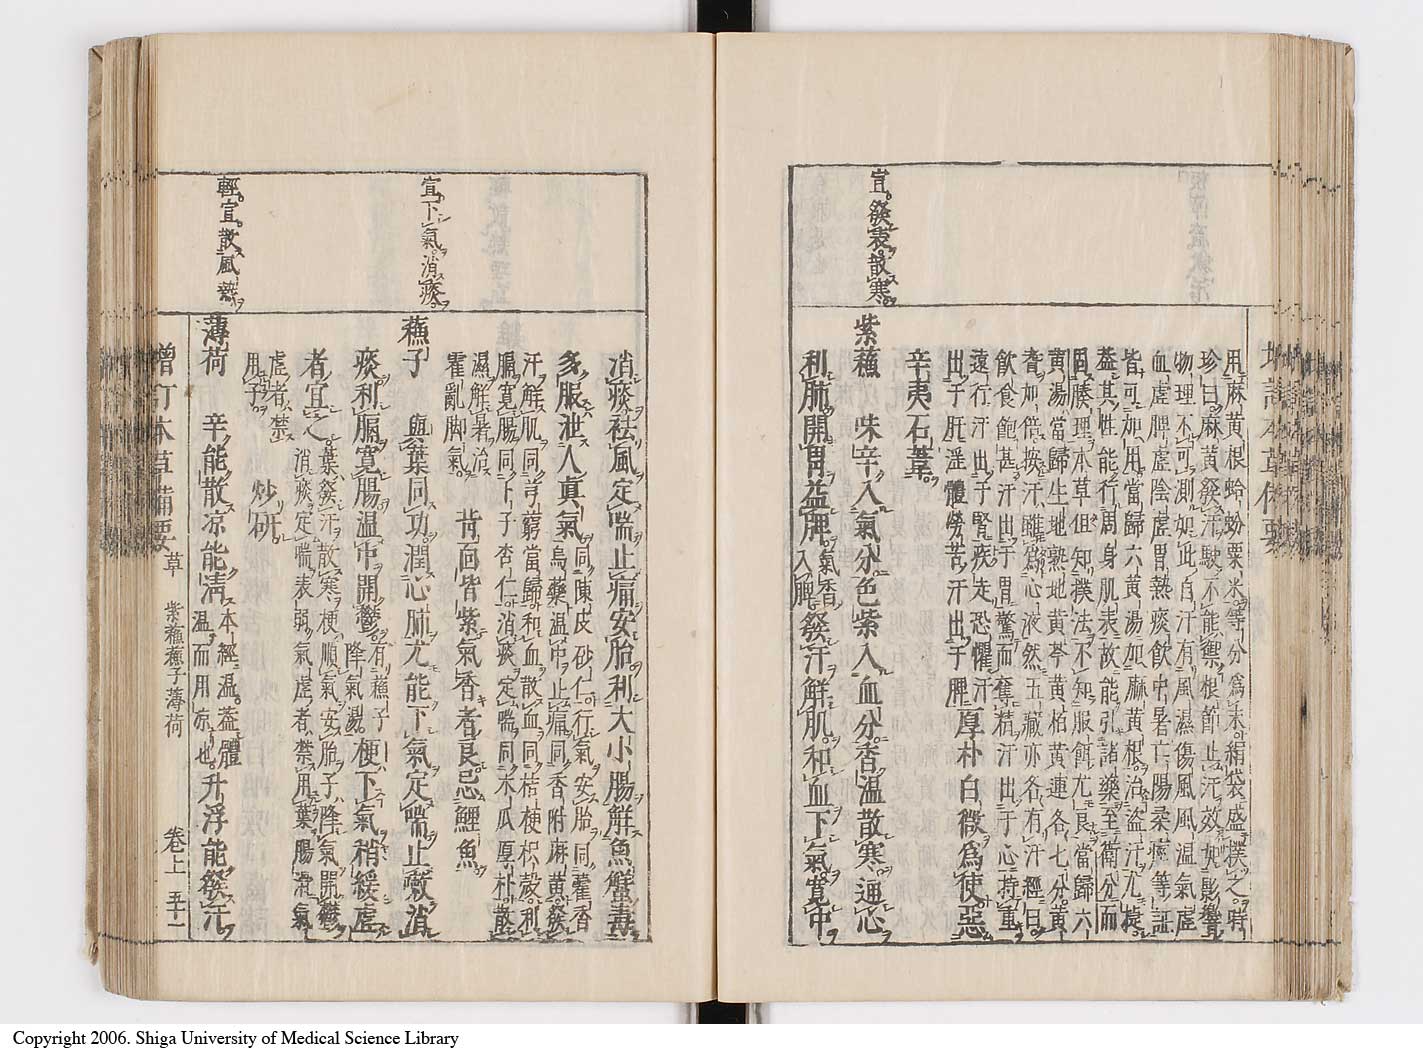 用麻黃根蛤蚡粟米等分爲末絹袋盛撲之時
珍曰麻黃發汗駛不能禦根節止汗效如影響
物理不可測如此自汗有風濕傷風風温氣虛
血虛脾虛陰虛胃熱痰飲中暑亡陽柔痓等証
皆可加用當歸六黃湯加麻黃根治盜汗尤捷
蓋其性能行周身肌表故能引諸藥至衛分而
固腠理本草但知撲法不知服餌尤良當歸六
黃湯當歸生地熟地黃芩黃栢黃連各七分黃
耆加倍按汗雖爲心液然五臟亦各有汗經曰
飲食飽甚汗出于胃驚而奪精汗出于心持重
遠行汗出于腎疾走恐懼汗
出于肝淫體勞苦汗出于脾厚朴白微爲使惡
辛夷石葦
宜發表散寒
紫蘇 味辛入氣分色紫入血分香温散寒通心
利肺開胃益脾氣香入脾發汗解肌和血下氣寬中
消痰祛風定喘止痛安胎利大小腸解魚蟹毒
多服泄人真氣同陳皮砂仁行氣安胎同藿香
烏藥温中止痛同香附麻黃發
汗解肌同芎藭當歸和血散血同桔梗枳殼利
膈寬腸同卜子杏仁消痰定喘同木瓜厚朴散
濕解暑治
霍亂脚氣 背面皆紫氣香者良忌鯉魚
宜下氣消痰
蘇子 與葉同功潤心肺尤能下氣定喘止嗽消
痰利膈寬腸温中開鬱有蘇子降氣湯梗下氣稍緩虛
者宜之葉發汗散寒梗順氣安胎子降氣開鬱
消痰定喘表弱氣虛者禁用葉腸滑氣
虛者禁
用子 炒研
輕宣散風熱
薄荷 辛能散凉能清本經温蓋體
温而用凉也升浮能發汗
增訂本草備要 草 紫蘇蘇子薄荷 卷上 五十一
Copyright 2006. Shiga University of Medical Science Library